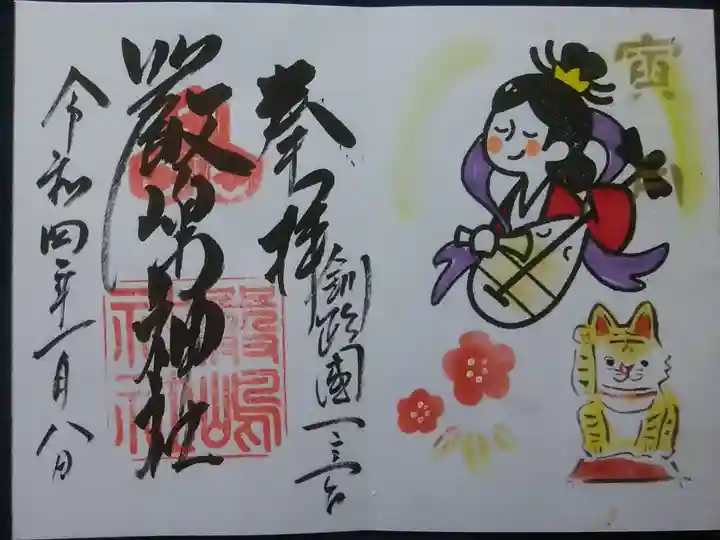 寅
奉拝
釧路國一之宮
嚴島神社
令和四年一月八日
嚴嶋
神社